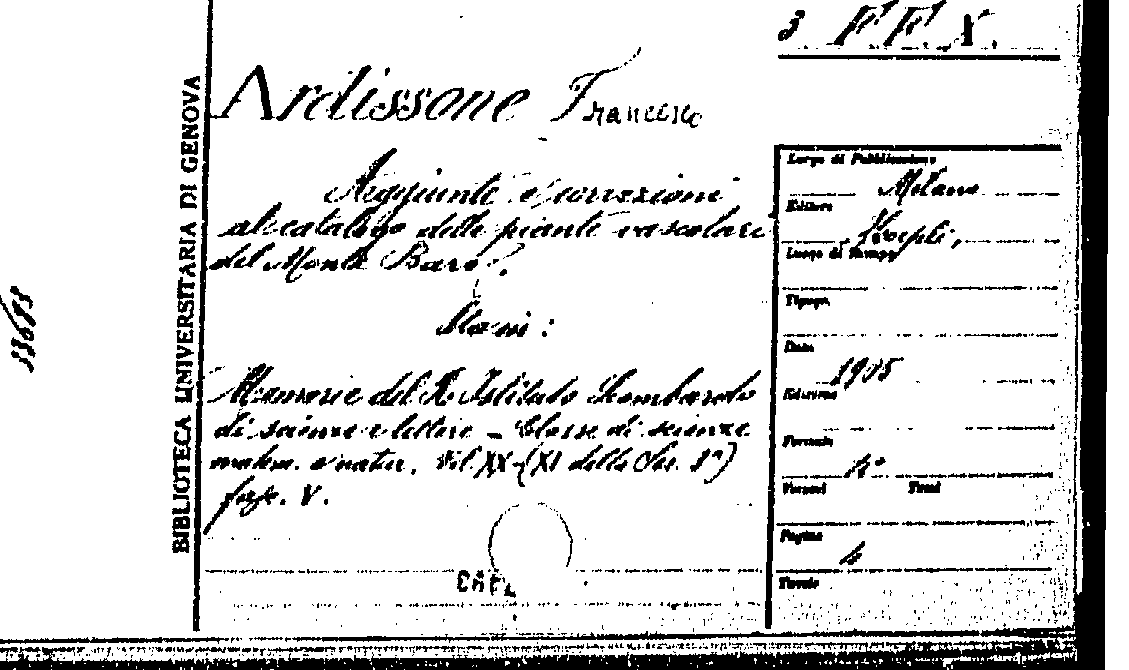 3 F F. X.
Ardissone Francesco
Aggiunte e correzioni
al catalogo delle piante vascolari
del Monte Baro.
Memorie del R. Istituto Lombardo
di scienze e lettere – Classe di scienze
matem. e natur. Vol. XX – (XI della Ser. 3ª)
fasc. V.
BIBLIOTECA UNIVERSITARIA DI GENOVA
Luogo di Pubblicazione
Milano
Editore
Hoepli,
Luogo di Stampa
Tipogr.
Data
1905
Edizione
Formato
4°
Volumi Tomi
Pagine
4
Tavole